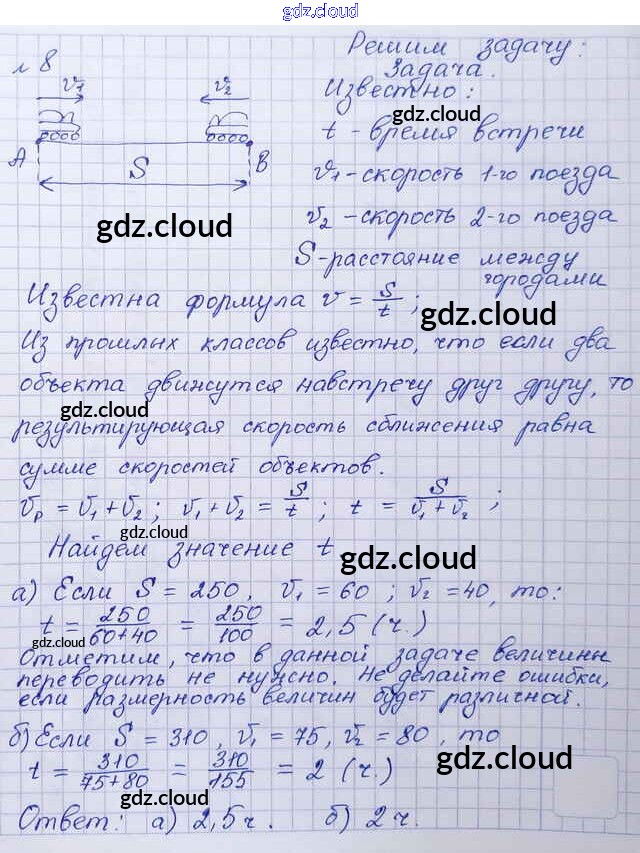 gdz.cloud
№ 8
Решим задачу:
Задача.
v₁ v₂
Известно:
gdz.cloud
t - время встречи
A S B
v₁ - скорость 1-го поезда
gdz.cloud
v₂ - скорость 2-го поезда
S - расстояние между
городами
Известна формула v = S/t ;
gdz.cloud
Из прошлых классов известно, что если два
объекта движутся навстречу друг другу, то
gdz.cloud
результирующая скорость сближения равна
сумме скоростей объектов.
gdz.cloud
vₚ = v₁ + v₂ ; v₁ + v₂ = S/t ; t = S/(v₁ + v₂) ;
gdz.cloud
Найдем значение t
gdz.cloud
а) Если S = 250, v₁ = 60 ; v₂ = 40, то:
t = 250/(60+40) = 250/100 = 2,5 (ч.)
gdz.cloud
Отметим, что в данной задаче величины
переводить не нужно. Не делайте ошибки,
если размерность величин будет различной.
б) Если S = 310, v₁ = 75, v₂ = 80, то
t = 310/(75+80) = 310/155 = 2 (ч.)
gdz.cloud
Ответ: а) 2,5 ч. б) 2 ч.